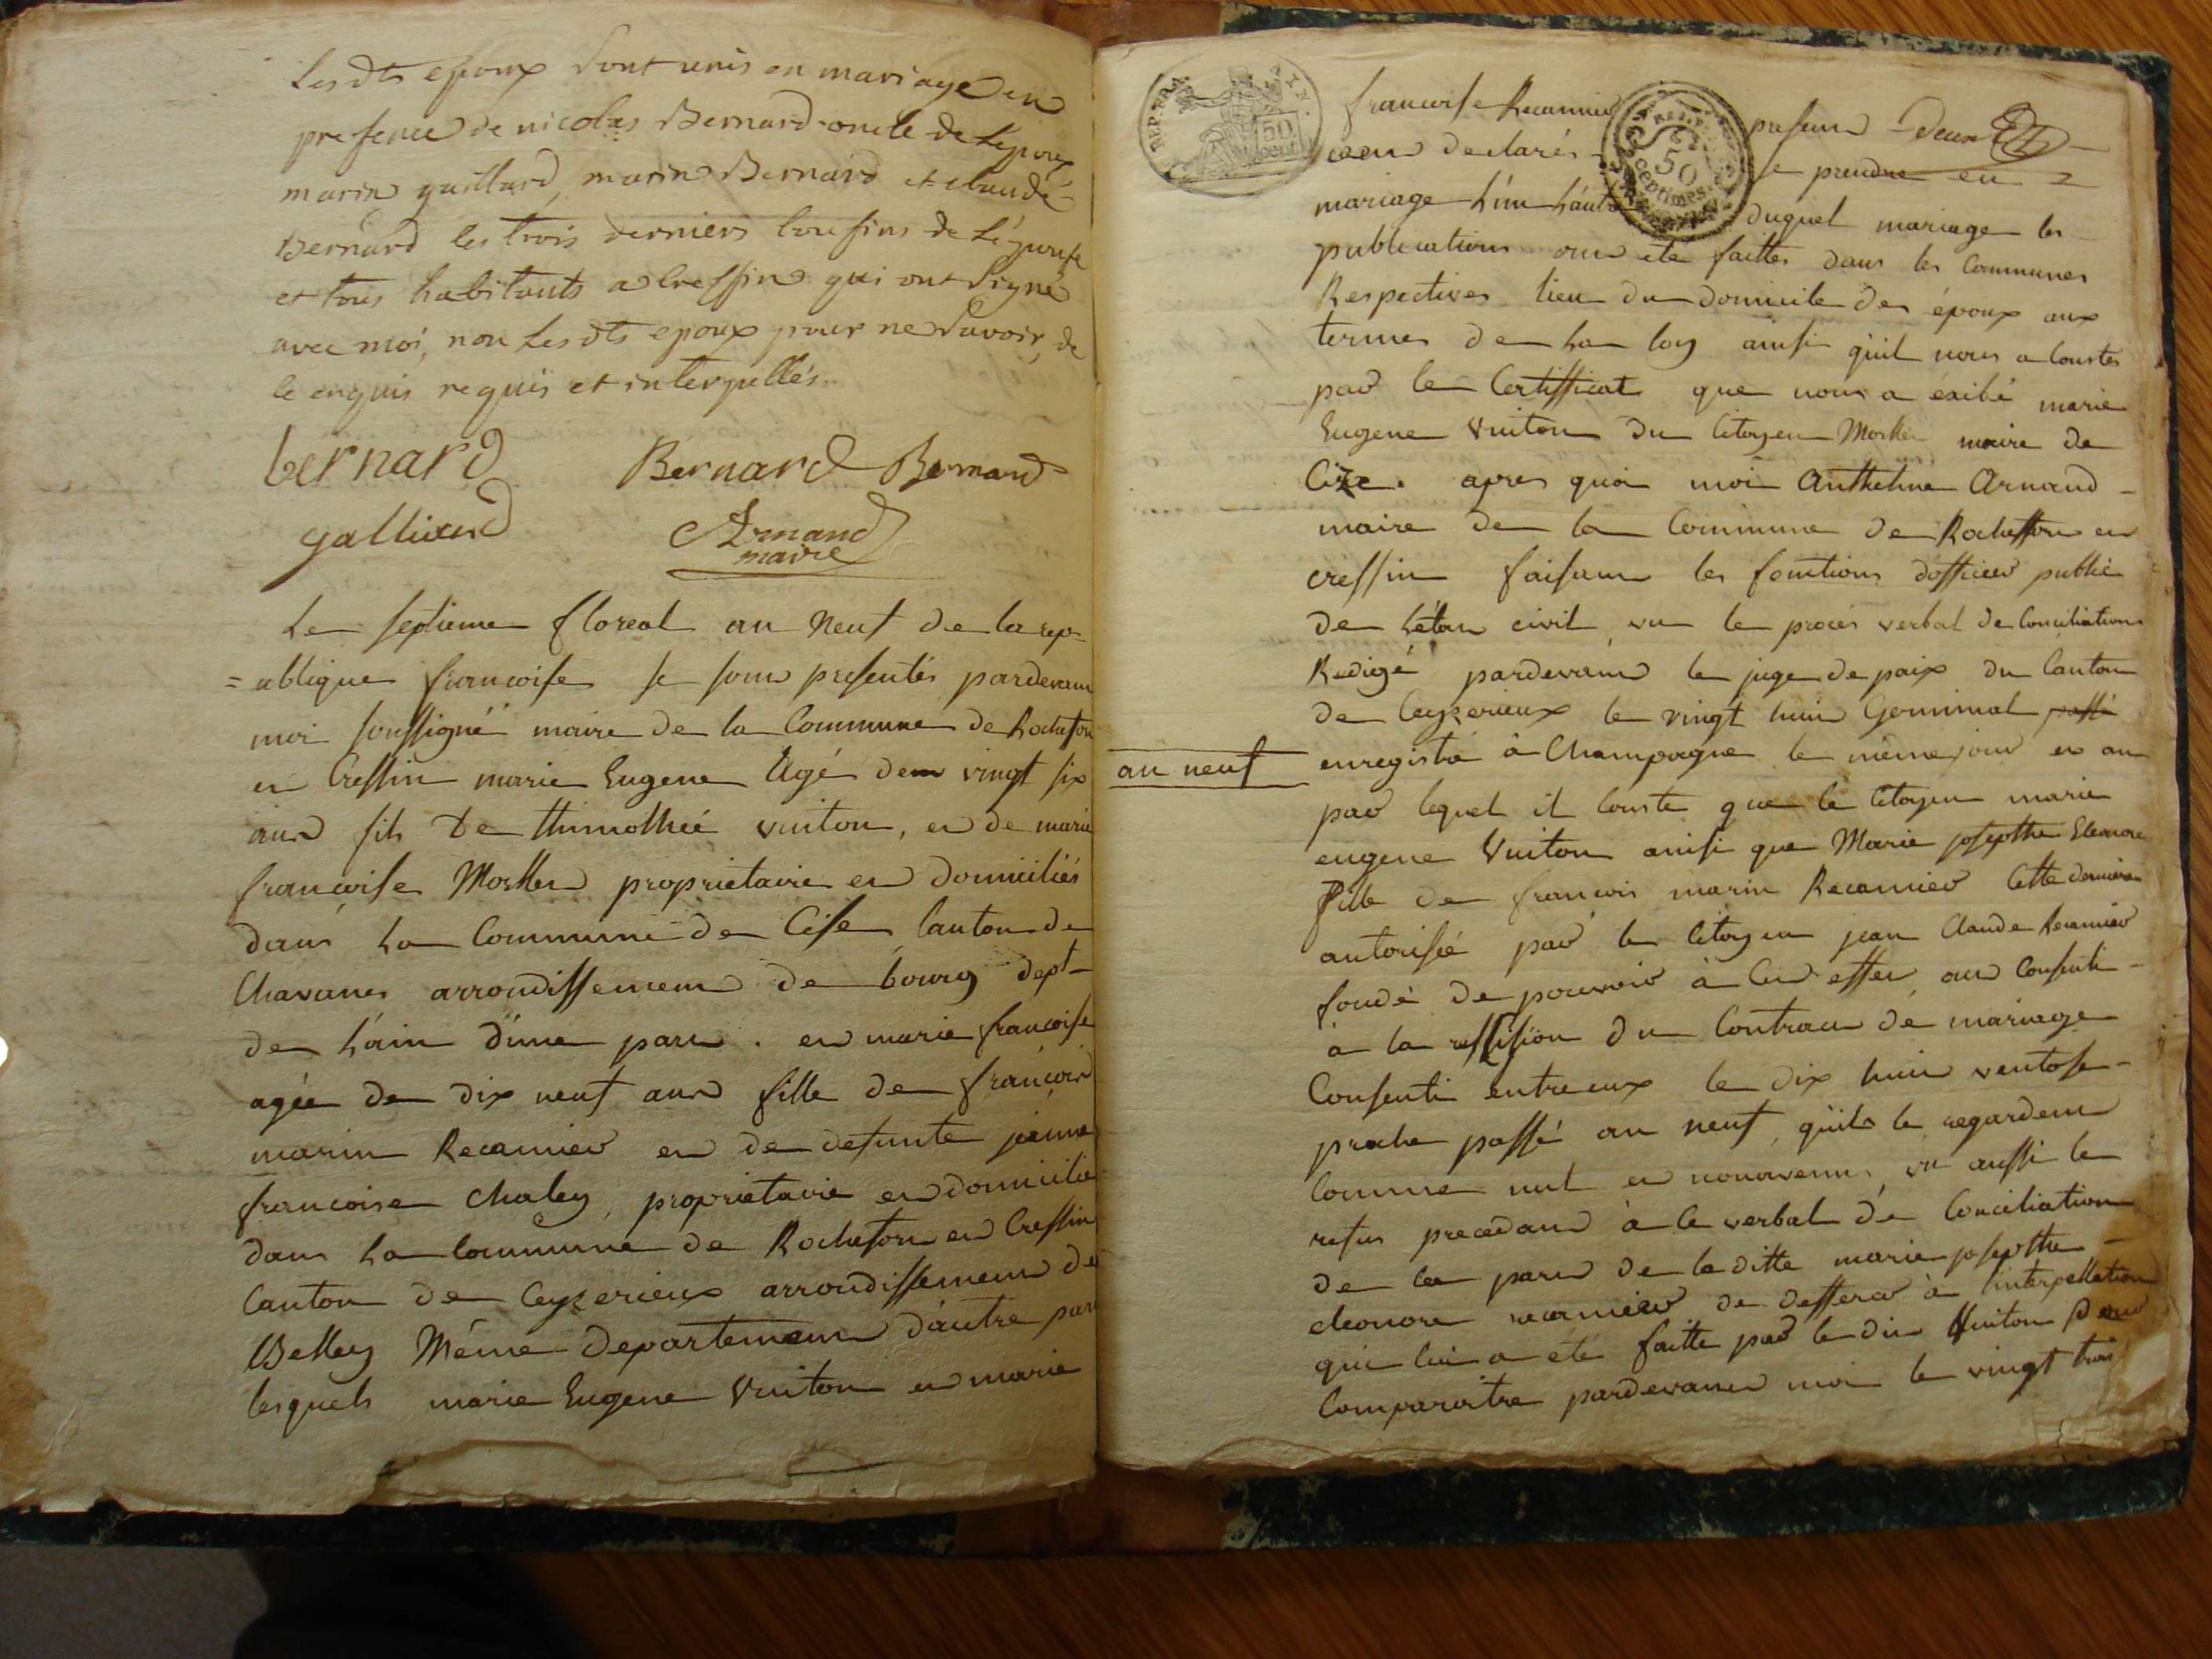 Les dts epoux sont unis en mariage en
presence de nicolas Bernard oncle de Lépoux
marin gaillard, marin Bernard et claude
Bernard les trois derniers cousins de Lépouse
et tous habitants a Cressin qui ont signé
avec moi, non Les dts epoux pour ne savoir, de
ce enquis requis et interpellés.
bernard Bernard Bernard
galliard Arnaud
maire
Le septieme floreal an neuf de la rep-
=ublique francoise se sont presentés pardevant
moi soussigné maire de la Commune de Rochefort
en Cressin marie Eugene Agé de vingt six
ans fils De thimothée vuiton, et de marie
francoise Morller proprietaire et domiciliés
dans La Commune de Cise Canton de
Chavanes arrondissement de bourg dept-
de L'ain d'une part. et marie francoise
agée de dix neuf ans fille de francois
marin Recamier et de defunte jeanne
francoise Chaley, proprietaire et domicilié
dans La Commune de Rochefort en Cressin
Canton de Ceyzerieux arrondissement de
Belley Même departement d'autre part
lesquels marie Eugene Vuiton et marie
REP. FRA. AIN.
50 cent
50 centimes
francoise Recamier presents deux
declarés se prendre en
mariage L'un L'autre duquel mariage les
publications ont eté faittes dans les Communes
Respectives lieu du domicile des époux aux
termes de La loy ainsi qu'il nous a Consté
par le Certifficat que nous a éxibé marie
Eugene Vuiton du Citoyen Morller maire de
Cize. apres quoi moi Anthelme Arnaud -
maire de la Commune de Rochefort en
cressin faisant les fonctions d'officier public
de L'état civil, vu le procès verbal de Conciliation
Redigé pardevant le juge de paix du Canton
de Ceyzerieux le vingt huit Germinal passé
an neuf
enregistré à Champagne le même jour et an
par lequel il Conste que le Citoyen marie
eugene Vuiton ainsi que Marie josepthe Eleonore
fille de francois marin Recamier Cette derniere
autorisée par le Citoyen jean Claude Recamier
fondé de pouvoir à Cet effet, ont Consenti -
à la ression du Contract de mariage
Consenti entre eux le dix huit ventose -
proche passé an neuf, qu'ils le regardent
Comme nul et nonavenu, vu aussi le
refus precedant à Ce verbal de Conciliation
de la part de la ditte marie josepthe -
eleonore recamier de defferer à L'interpellation
qui lui a été faitte par le dit Vuiton de
Comparoitre pardevant moi le vingt trois